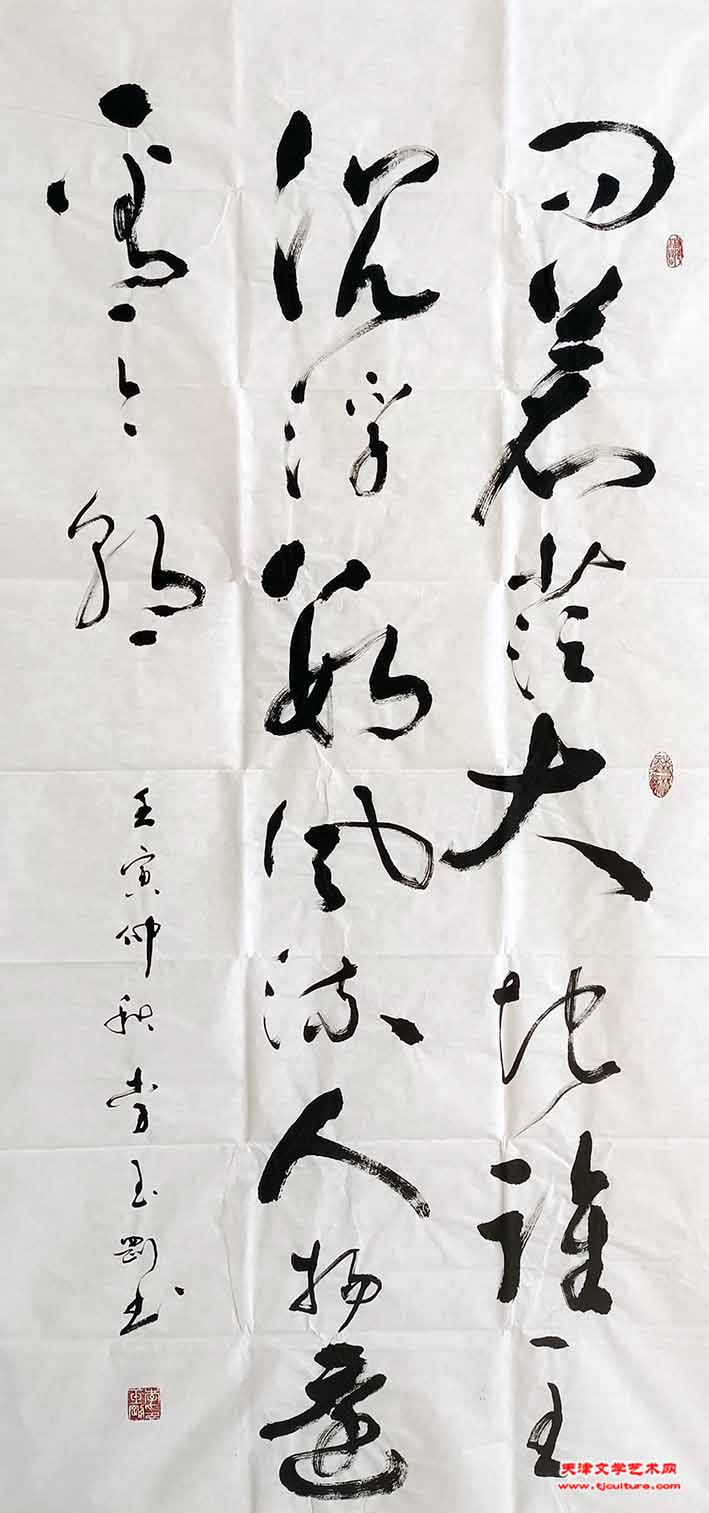 问苍茫大地谁主
沉浮数风流人物还
看今朝
壬寅仲秋李玉刚书
天津文学艺术网
www.tjculture.com